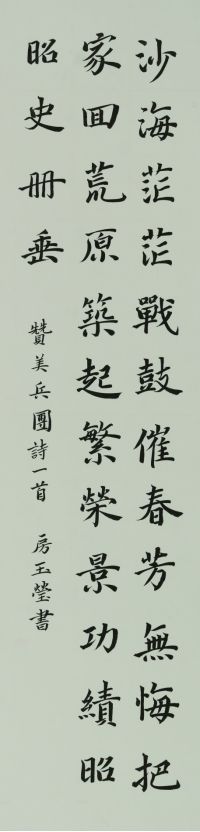 沙海茫茫戰鼓催春芳無悔把
家回荒原築起繁榮景功績昭
昭史冊垂
贊美兵團詩一首 房玉瑩書